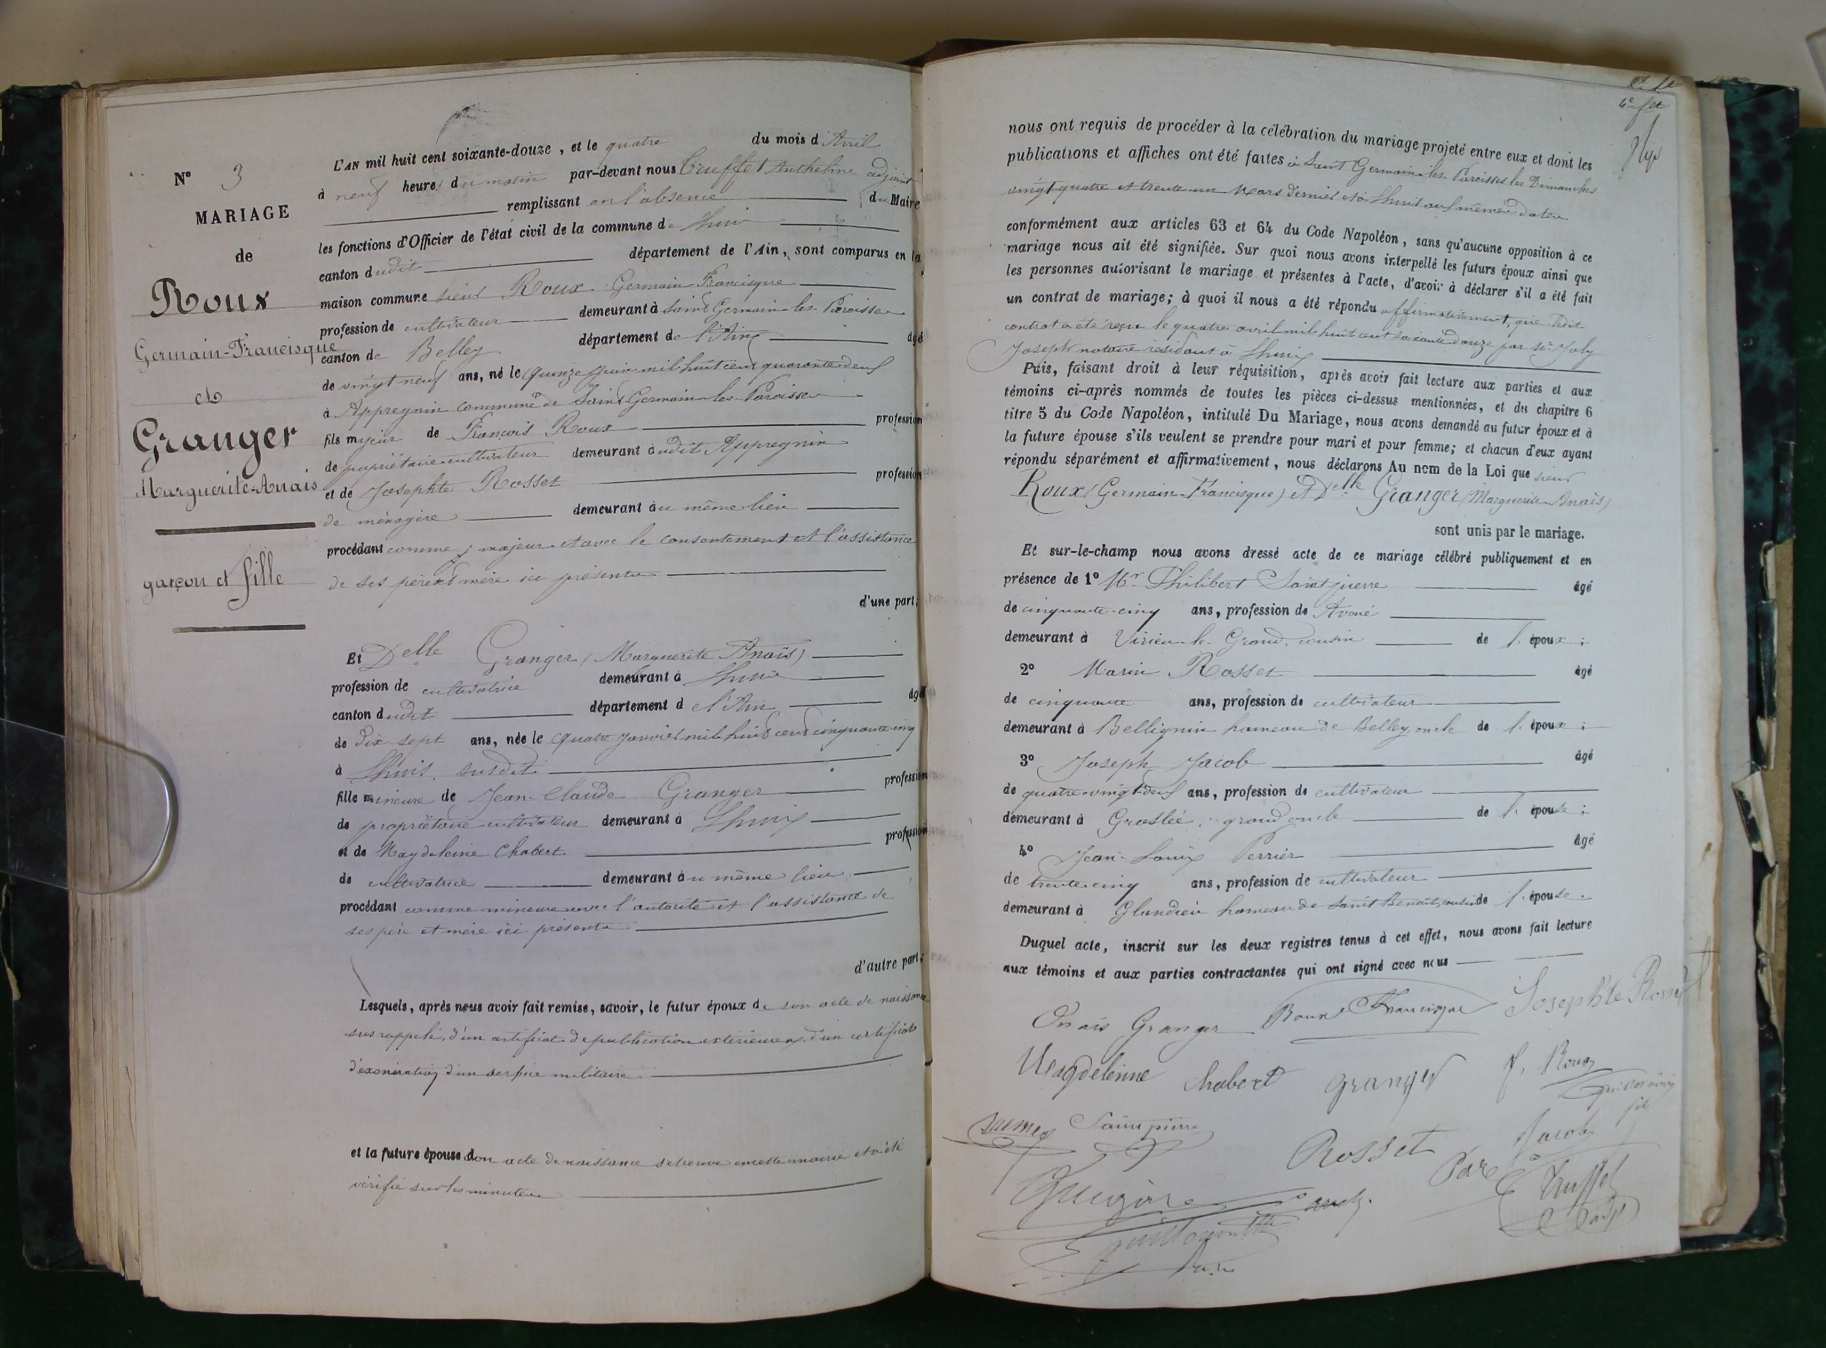 N° 3
MARIAGE
de
Roux
Germain-Francisque
et
Granger
Marguerite-Anaïs
garçon et fille
L'AN mil huit cent soixante-douze, et le quatre du mois d'Avril
à neuf heures du matin par-devant nous Truffet Anthelme adjoint
remplissant en l'absence du Maire
les fonctions d'Officier de l'état civil de la commune de Lhuis
canton dudit département de l'Ain, sont comparus en la
maison commune sieur Roux Germain Francisque
profession de cultivateur demeurant à Saint Germain les Paroisses
canton de Belley département de l'Ain âgé
de vingt neuf ans, né le quinze mil huit cent quarante deux
à Appregnin commune de Saint Germain les Paroisses
fils majeur de François Roux profession
de propriétaire cultivateur demeurant audit Appregnin
et de Josephte Rosset profession
de ménagère demeurant au même lieu
procédant comme majeur et avec le consentement et l'assistance
de ses père et mère ici présents
d'une part;
Et Delle Granger (Marguerite Anaïs)
profession de cultivatrice demeurant à Lhuis
canton dudit département de l'Ain âgé
de dix sept ans, née le quatre janvier mil huit cent cinquante cinq
à Lhuis susdit
fille mineure de Jean Claude Granger profession
de propriétaire cultivateur demeurant à Lhuis
et de Magdeleine Chabert profession
de cultivatrice demeurant au même lieu
procédant comme mineure avec l'autorité et l'assistance de
ses père et mère ici présents
d'autre part;
Lesquels, après nous avoir fait remise, savoir, le futur époux de son acte de naissance
sus rappelé, d'un certificat de publication extérieure, d'un certificat
d'exonération d'un service militaire
et la future épouse son acte de naissance se trouve en cette mairie et a été
vérifié sur les minutes
4e
nous ont requis de procéder à la célébration du mariage projeté entre eux et dont les
publications et affiches ont été faites à Saint Germain les Paroisses les Dimanches
vingt quatre et trente un Mars dernier et à Lhuis aux mêmes dates
conformément aux articles 63 et 64 du Code Napoléon, sans qu'aucune opposition à ce
mariage nous ait été signifiée. Sur quoi nous avons interpellé les futurs époux ainsi que
les personnes autorisant le mariage et présentes à l'acte, d'avoir à déclarer s'il a été fait
un contrat de mariage; à quoi il nous a été répondu affirmativement, que ledit
contrat a été reçu le quatre avril mil huit cent soixante douze par Me Joly
Joseph notaire résidant à Lhuis
Puis, faisant droit à leur réquisition, après avoir fait lecture aux parties et aux
témoins ci-après nommés de toutes les pièces ci-dessus mentionnées, et du chapitre 6
titre 5 du Code Napoléon, intitulé Du Mariage, nous avons demandé au futur époux et à
la future épouse s'ils veulent se prendre pour mari et pour femme; et chacun d'eux ayant
répondu séparément et affirmativement, nous déclarons Au nom de la Loi que sieur
Roux (Germain-Francisque) et Delle Granger (Marguerite-Anaïs)
sont unis par le mariage.
Et sur-le-champ nous avons dressé acte de ce mariage célébré publiquement et en
présence de 1° Mr Philibert Saintpierre âgé
de cinquante-cinq ans, profession de Avoué
demeurant à Virieu-le-Grand, cousin de l'époux;
2° Marin Rosset âgé
de cinquante ans, profession de cultivateur
demeurant à Bellignin hameau de Belley oncle de l'époux;
3° Joseph Jacob âgé
de quatre vingt deux ans, profession de cultivateur
demeurant à Groslée, grand oncle de l'épouse;
4° Jean-Louis Perrier âgé
de trente-cinq ans, profession de cultivateur
demeurant à Glandieu hameau de Saint Benoit, cousin de l'épouse.
Duquel acte, inscrit sur les deux registres tenus à cet effet, nous avons fait lecture
aux témoins et aux parties contractantes qui ont signé avec nous
Anaïs Granger Roux Francisque Josephte Rosset
Magdeleinne Chabert Granger f. Roux
Saintpierre Jacob
Rosset Truffet